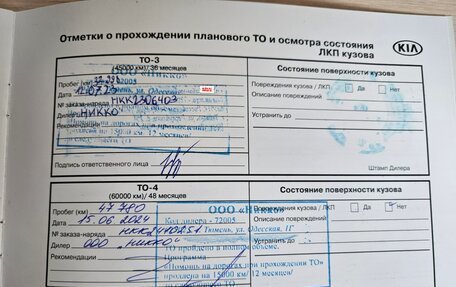 Отметки о прохождении планового ТО и осмотра состояния
ЛКП кузова
KIA
ТО-3
(45000 км)/ 36 месяцев
Состояние поверхности кузова
Пробег (км)
ООО «Никко»
Повреждения кузова / ЛКП Да Нет
Дата 12.07.23
72005
Описание повреждений
Тюмень, ул. Одесская
№ заказ-наряда НКК2306403
Дилер НИККО
Устранить до
Рекомендации
«Помощь на дорогах при прохождении ТО»
продлена на 15000 км/ 12 месяцев/
Подпись ответственного лица
Штамп Дилера
ТО-4
(60000 км)/ 48 месяцев
Состояние поверхности кузова
Пробег (км) 47 780
ООО «Никко»
Повреждения кузова / ЛКП Да Нет
Дата 15.06.2024
Код дилера - 72005
Описание повреждений
№ заказ-наряда
Тюмень, ул. Одесская, 1Г
Дилер ООО "Никко"
ТО пройдено в полном объеме.
Устранить до
Рекомендации
Программа
«Помощь на дорогах при прохождении ТО»
продлена на 15000 км/ 12 месяцев/